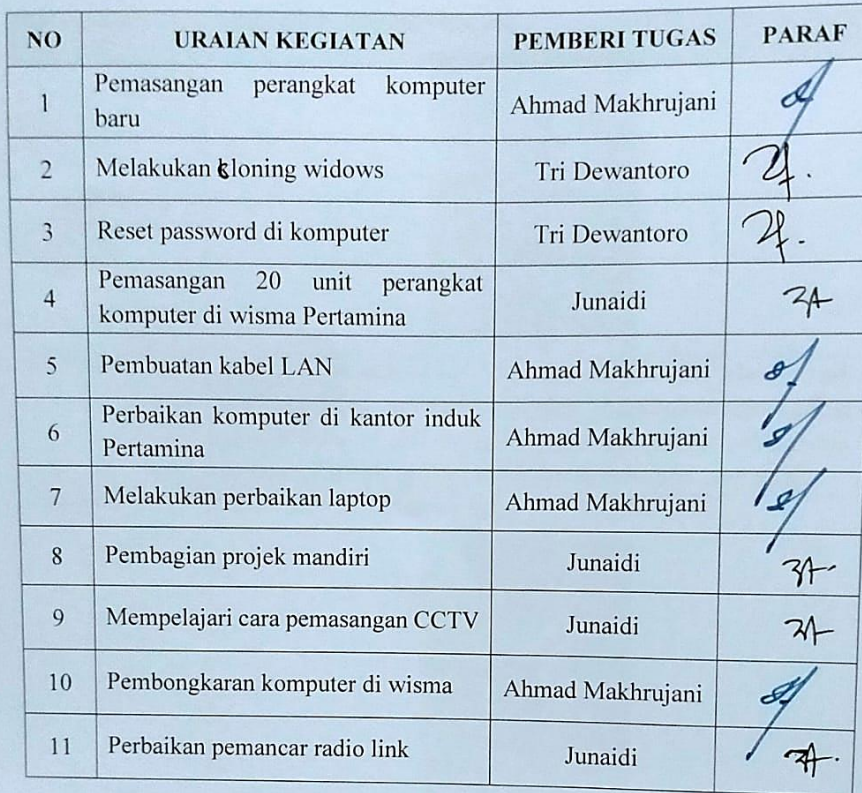 NO URAIAN KEGIATAN PEMBERI TUGAS PARAF
1 Pemasangan perangkat komputer
baru Ahmad Makhrujani
2 Melakukan kloning widows Tri Dewantoro
3 Reset password di komputer Tri Dewantoro
4 Pemasangan 20 unit perangkat
komputer di wisma Pertamina Junaidi
5 Pembuatan kabel LAN Ahmad Makhrujani
6 Perbaikan komputer di kantor induk
Pertamina Ahmad Makhrujani
7 Melakukan perbaikan laptop Ahmad Makhrujani
8 Pembagian projek mandiri Junaidi
9 Mempelajari cara pemasangan CCTV Junaidi
10 Pembongkaran komputer di wisma Ahmad Makhrujani
11 Perbaikan pemancar radio link Junaidi